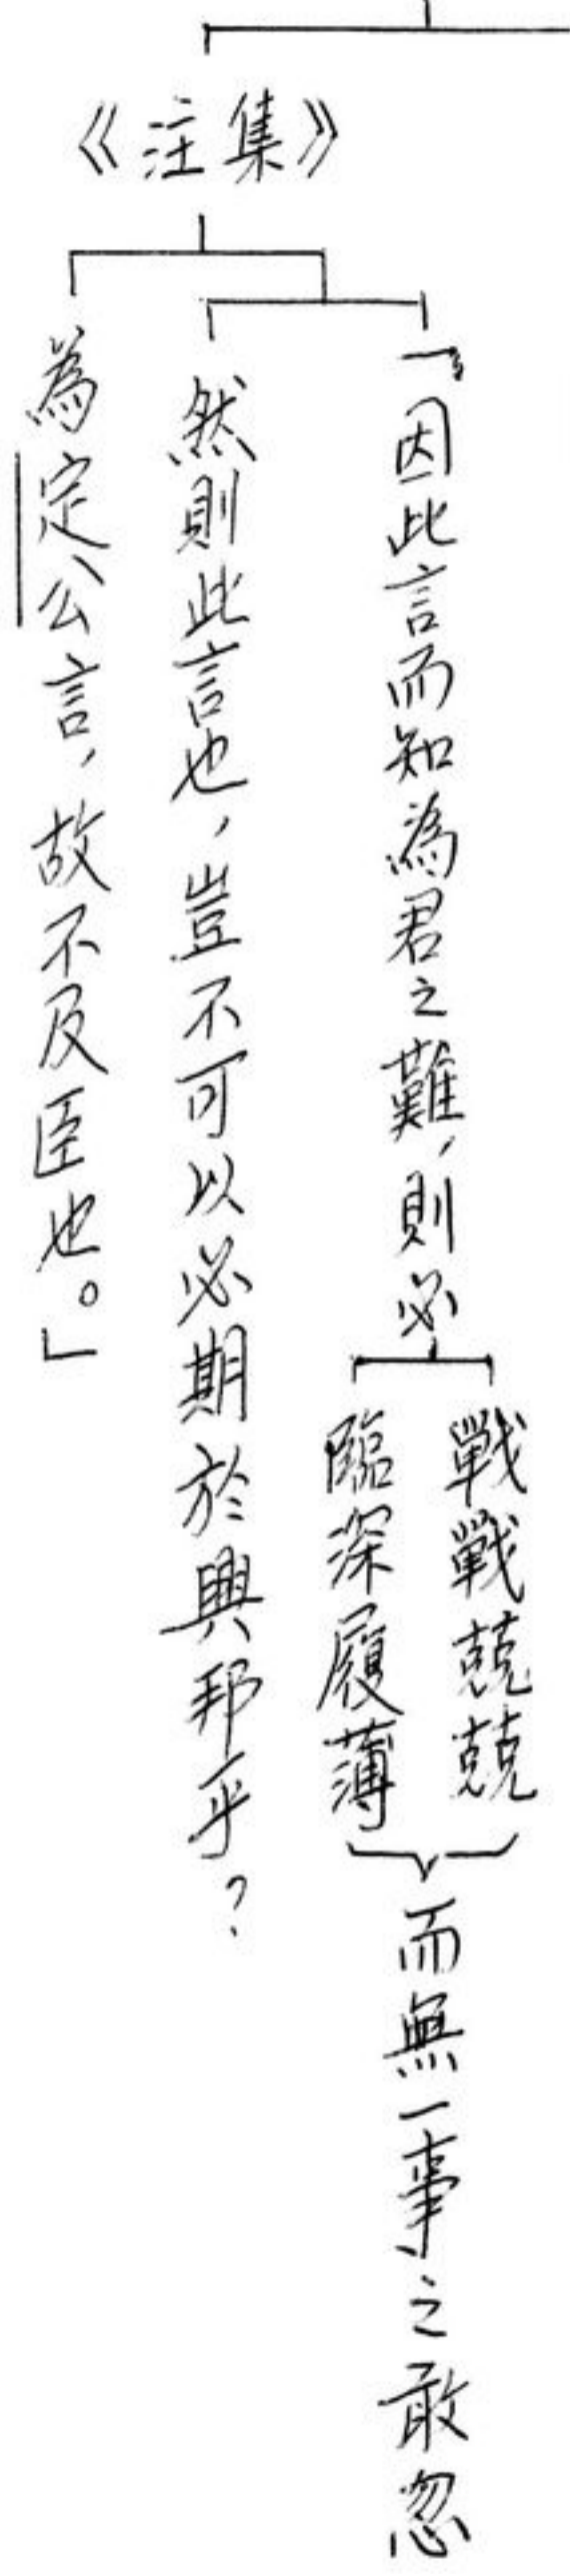 《注集》
「因此言而知為君之難，則必
戰戰兢兢
臨深履薄
而無一事之敢忽
然則此言也，豈不可以必期於興邦乎？
為定公言，故不及臣也。」